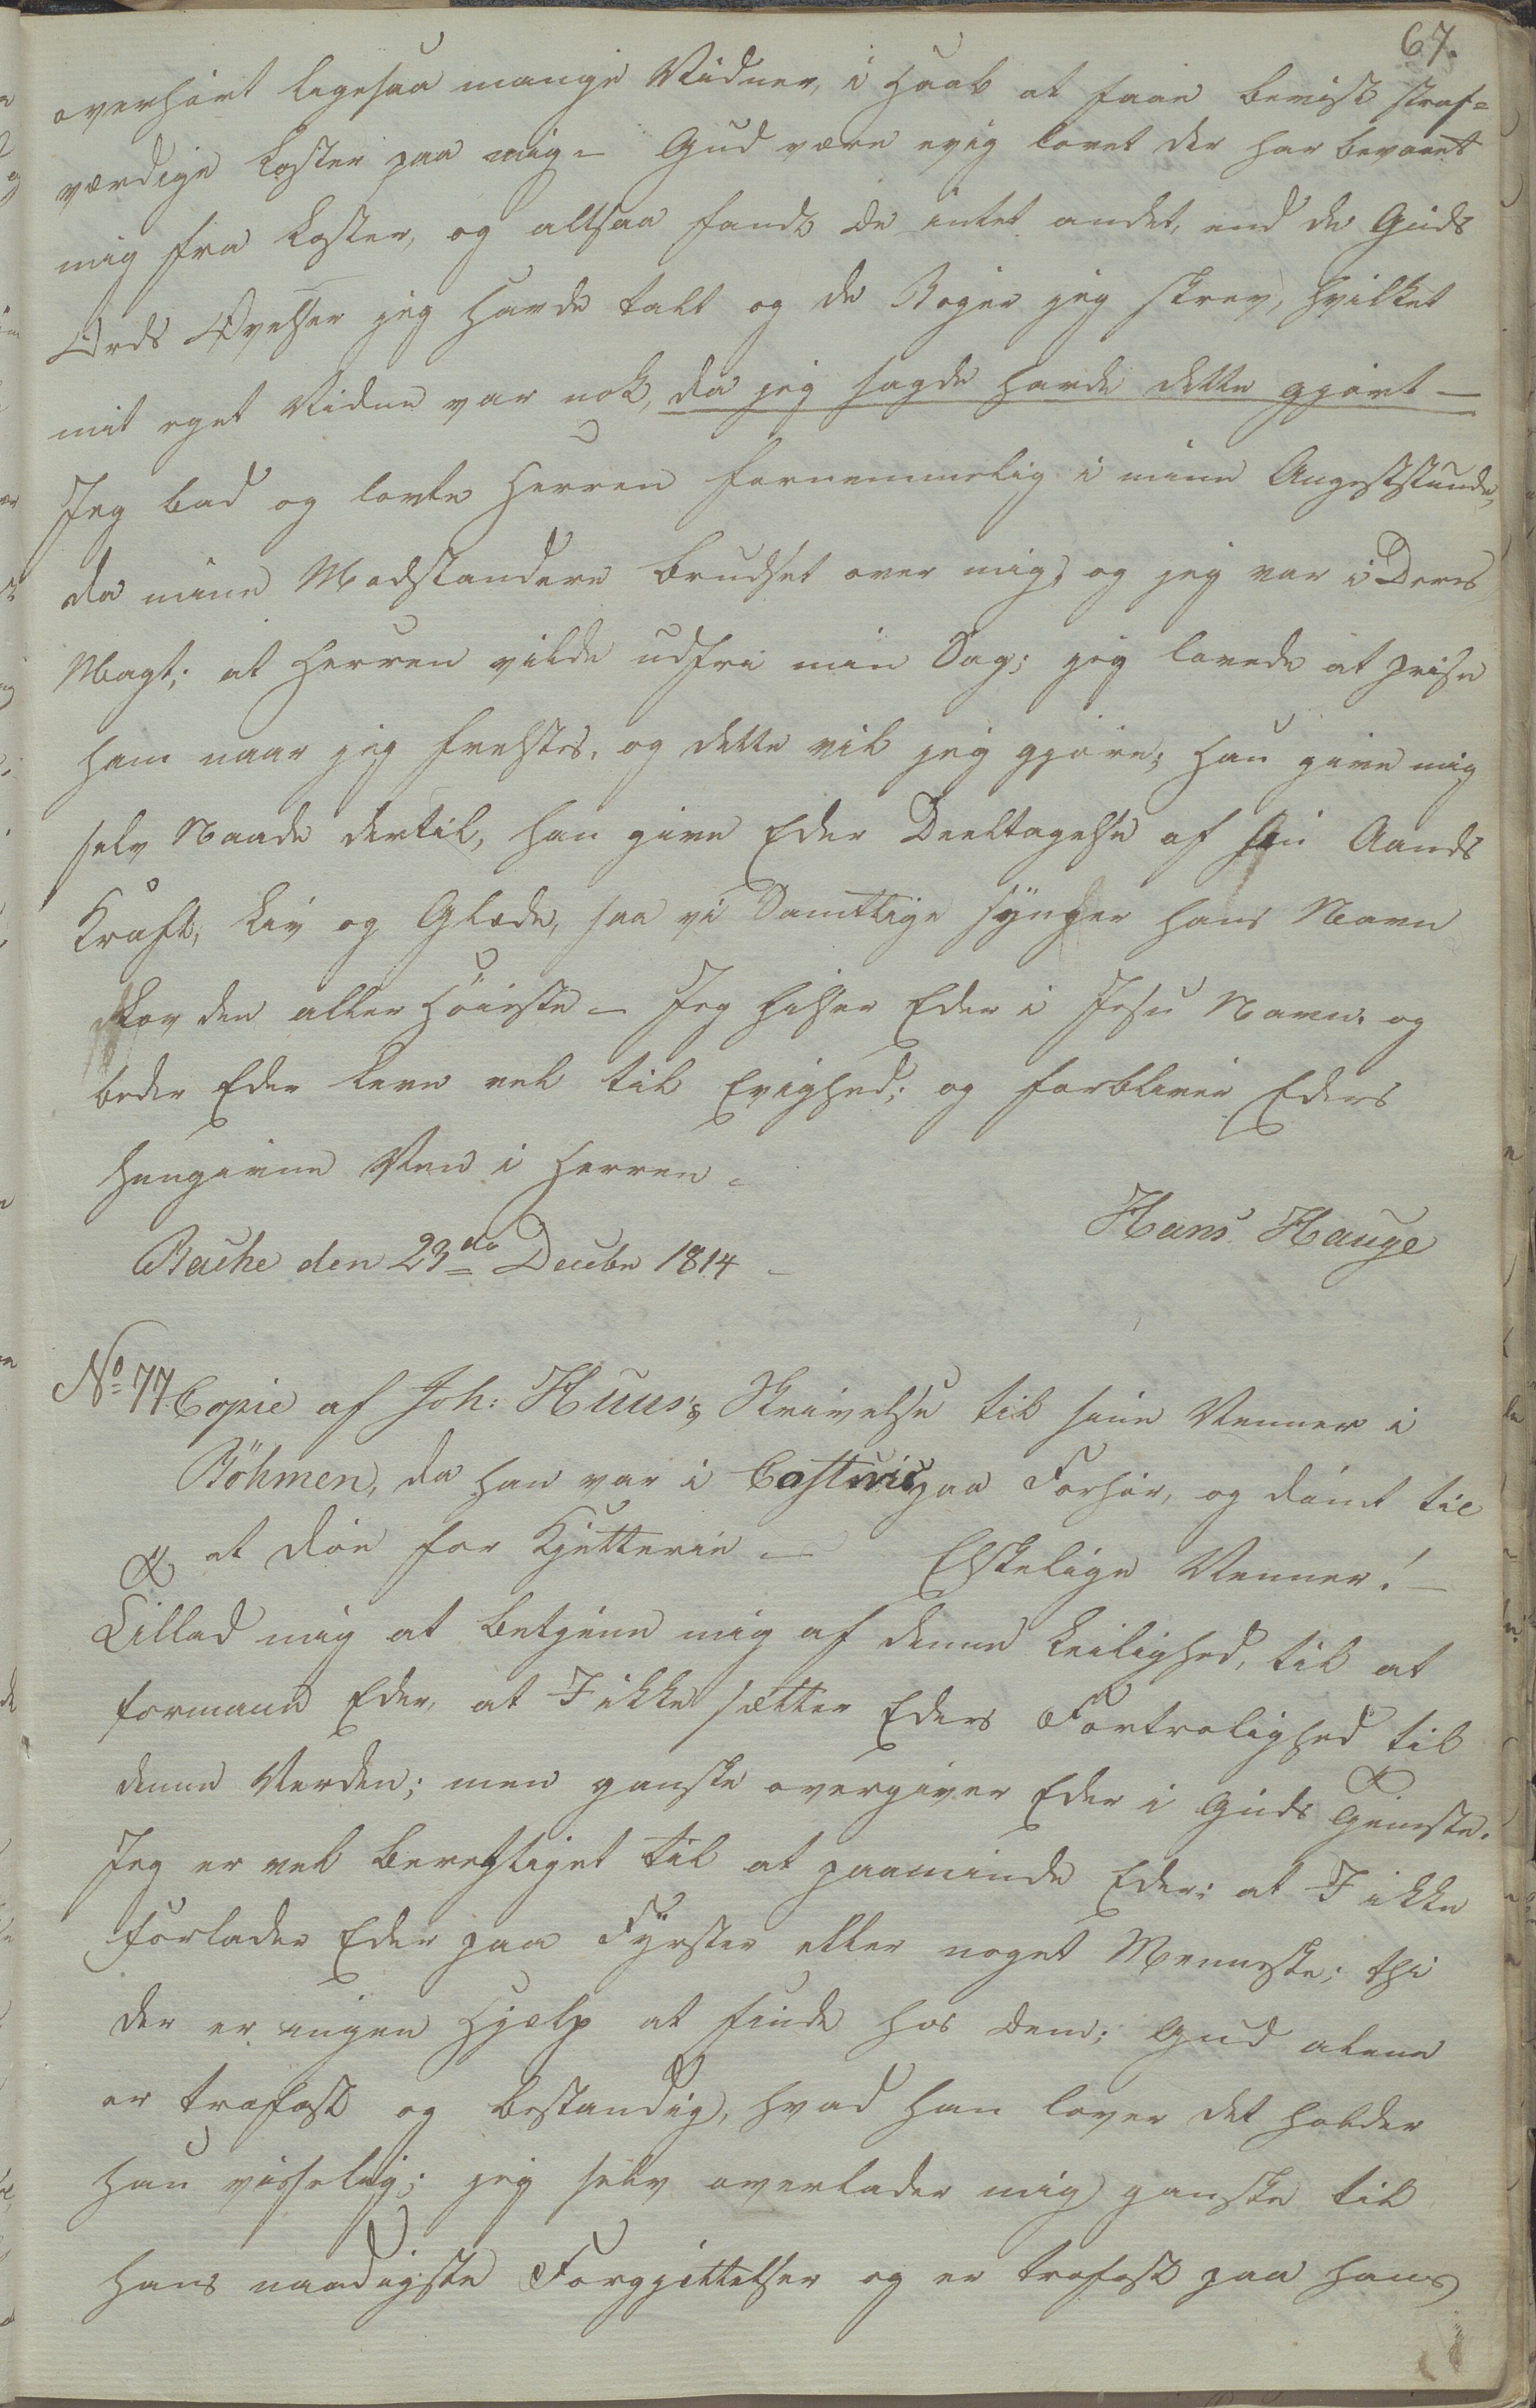 67.
overhørt ligesaa mange Vidner, i Haab at faae bevist straf=
værdige Laster paa mig – Gud være evig lovet der har bevaret
mig fra Laster, og altsaa fandt de intet andet, end de Guds
Ords Øvelser jeg havde talt og de Bøger jeg skrev, hvilket
mit eget Vidne var nok, da jeg sagde havde dette gjørt –
Jeg bad og lovte Herren fornemmelig i mine Angeststunde,
da mine Modstandere brudset over mig, og jeg var i Deres
Magt; at Herren vilde udfri min Sag; jeg lovede at prise
ham naar jeg frelstes, og dette vil jeg gjøre; Han give mig
selv Naade dertil, han give Eder Deeltagelse af sin Aands
Kraft, Liv og Glæde, saa vi Samtlige synger hans Navn
Lov den aller Høieste – Jeg hilser Eder i Jesu Navn, og
beder Eder leve vel til Evighed; og forbliver Eders
hengivne Ven i Herren –
Hans Hauge
Bache den 23de Decebr 1814 –
No 77 Copie af Joh: Huus's Skrivelse til sine Venner i
Böhmen, da han var i Costniz paa Forhør, og dømt til
at døe for Kjetterie – Elskelige Venner! –
Tillad mig at betjene mig af denne Leilighed, til at
formane Eder, at I ikke sætter Eders Fortrolighed til
denne Verden; men ganske overgiver Eder i Guds Tjeneste.
Jeg er vel berettiget til at paaminde Eder: at I ikke
forlader Eder paa Fyrster eller noget Menneske; thi
der er ingen Hjælp at finde hos dem; Gud alene
er trofast og bestandig, hvad han lover det holder
han visselig; jeg selv overlader mig ganske til
hans naadigste Forgjettelser og er trofast paa hans